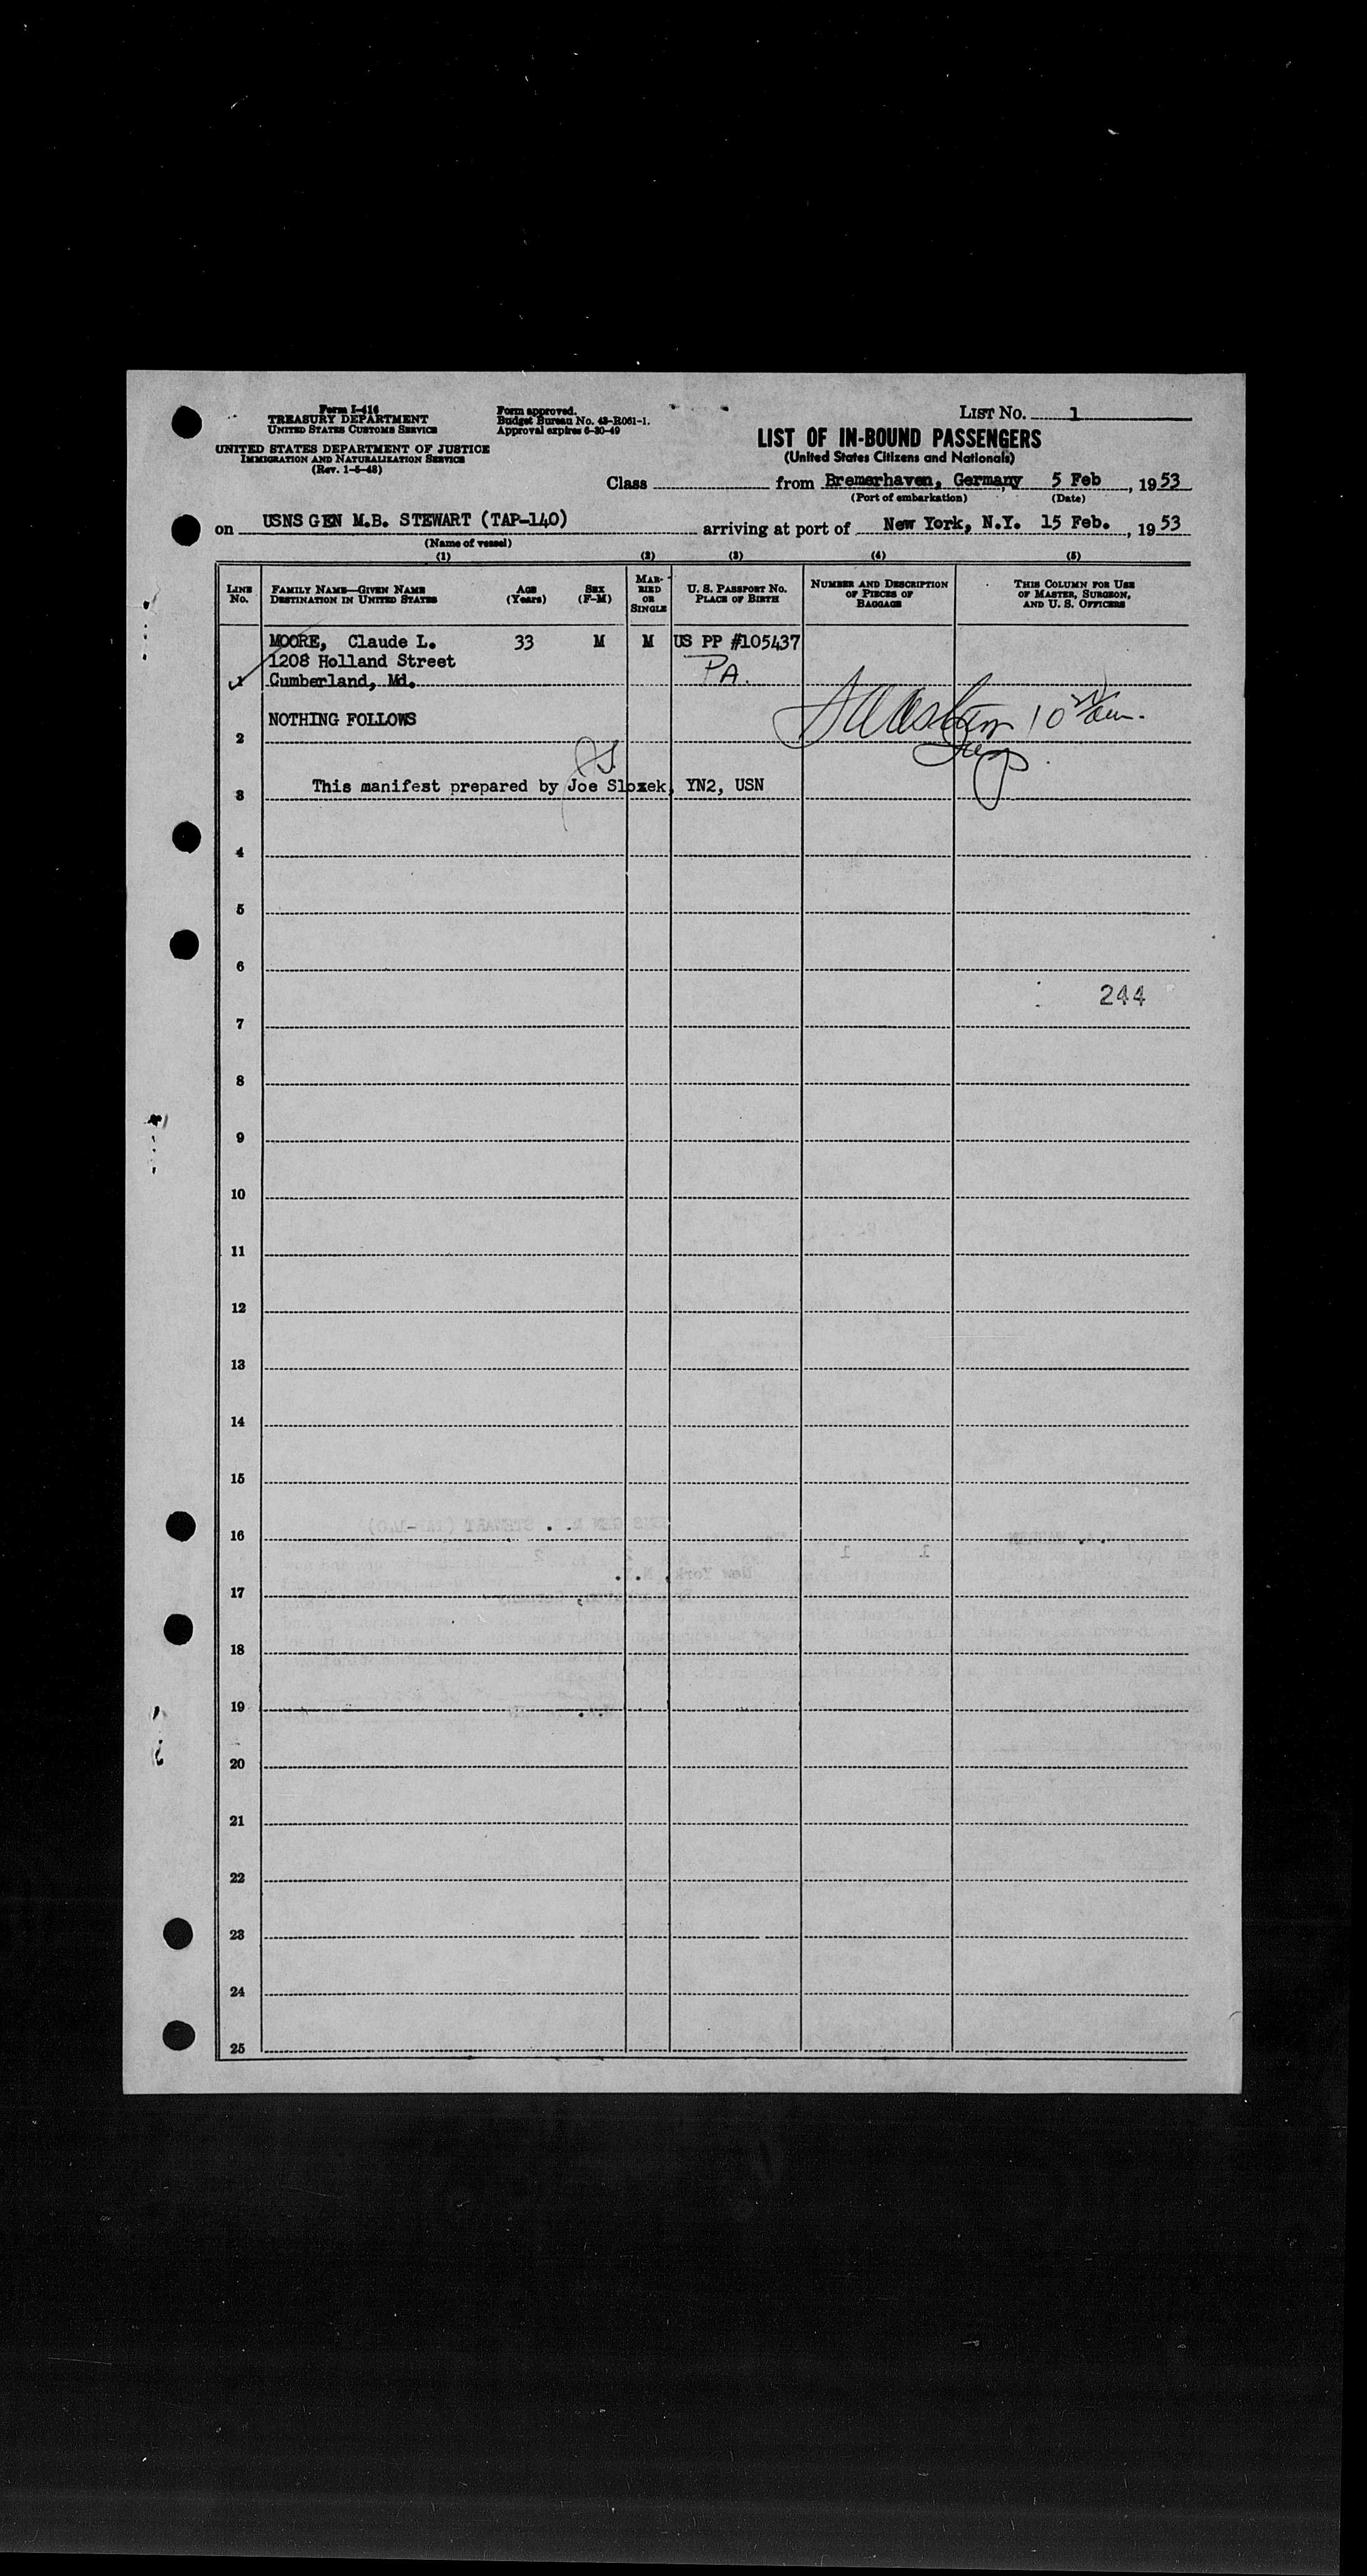 Form I-416
TREASURY DEPARTMENT
UNITED STATES CUSTOMS SERVICE
UNITED STATES DEPARTMENT OF JUSTICE
IMMIGRATION AND NATURALIZATION SERVICE
(Rev. 1-6-48)
Form approved.
Budget Bureau No. 43-R061-1.
Approval expires 6-30-49
LIST NO. 1
LIST OF IN-BOUND PASSENGERS
(United States Citizens and Nationals)
Class from Bremerhaven, Germany 5 Feb , 1953
(Port of embarkation) (Date)
on USNS GEN M.B. STEWART (TAP-140) arriving at port of New York, N.Y. 15 Feb. , 1953
(Name of vessel)
(1) (2) (3) (4) (5)
LINE NO. FAMILY NAME—GIVEN NAME DESTINATION IN UNITED STATES AGE (Years) SEX (F-M) MARRIED OR SINGLE U. S. PASSPORT NO. PLACE OF BIRTH NUMBER AND DESCRIPTION OF PIECES OF BAGGAGE THIS COLUMN FOR USE OF MASTER, SURGEON, AND U. S. OFFICERS
MOORE, Claude L. 33 M M US PP #105437
1208 Holland Street PA.
1 Cumberland, Md.
NOTHING FOLLOWS
2
JS.
3 This manifest prepared by Joe Slozek, YN2, USN
4
5
6
244
7
8
9
10
11
12
13
14
15
16
17
18
19
20
21
22
23
24
25